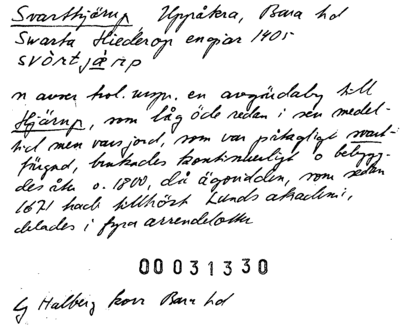 Svarthjärup, Uppåkra, Bara hd
Swarta Hiederop engiar 1405
svòrt jæ̀rəp
n avser trol. urspr. en avgärdaby till
Hjärup, som låg öde redan i sen medel-
tid men vars jord, som var påtagligt svart-
färgad, brukades kontinuerligt o bebygg-
des åter o. 1800, då ägovidden, som sedan
1671 hade tillhört Lunds akademi,
delades i fyra arrendelotter
00031330
Hallberg korr Bara hd